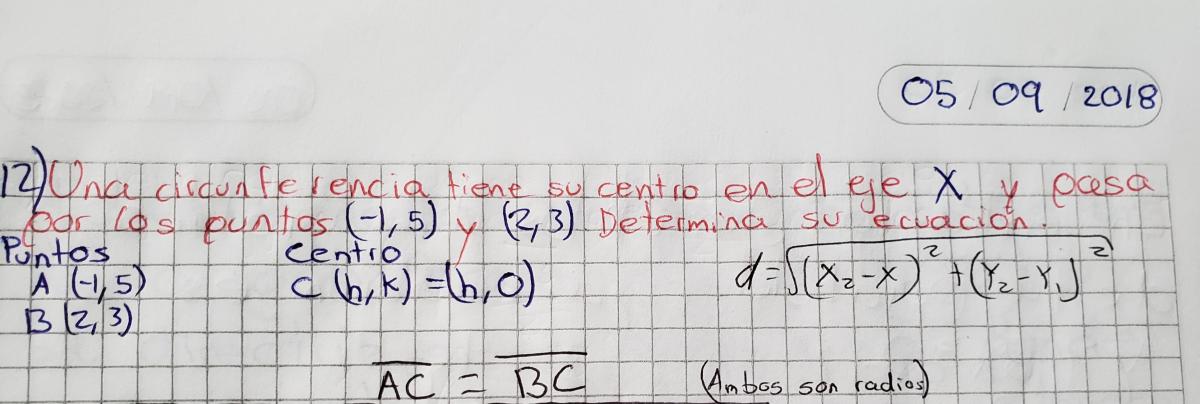 05/09/2018
12) Una circunferencia tiene su centro en el eje X y pasa
por los puntos (-1, 5) y (2, 3) Determina su ecuación.
Puntos Centro
A (-1, 5) C (h, k) = (h, 0) d = √(X₂ - X)² + (Y₂ - Y₁)²
B (2, 3)
AC = BC (Ambos son radios)